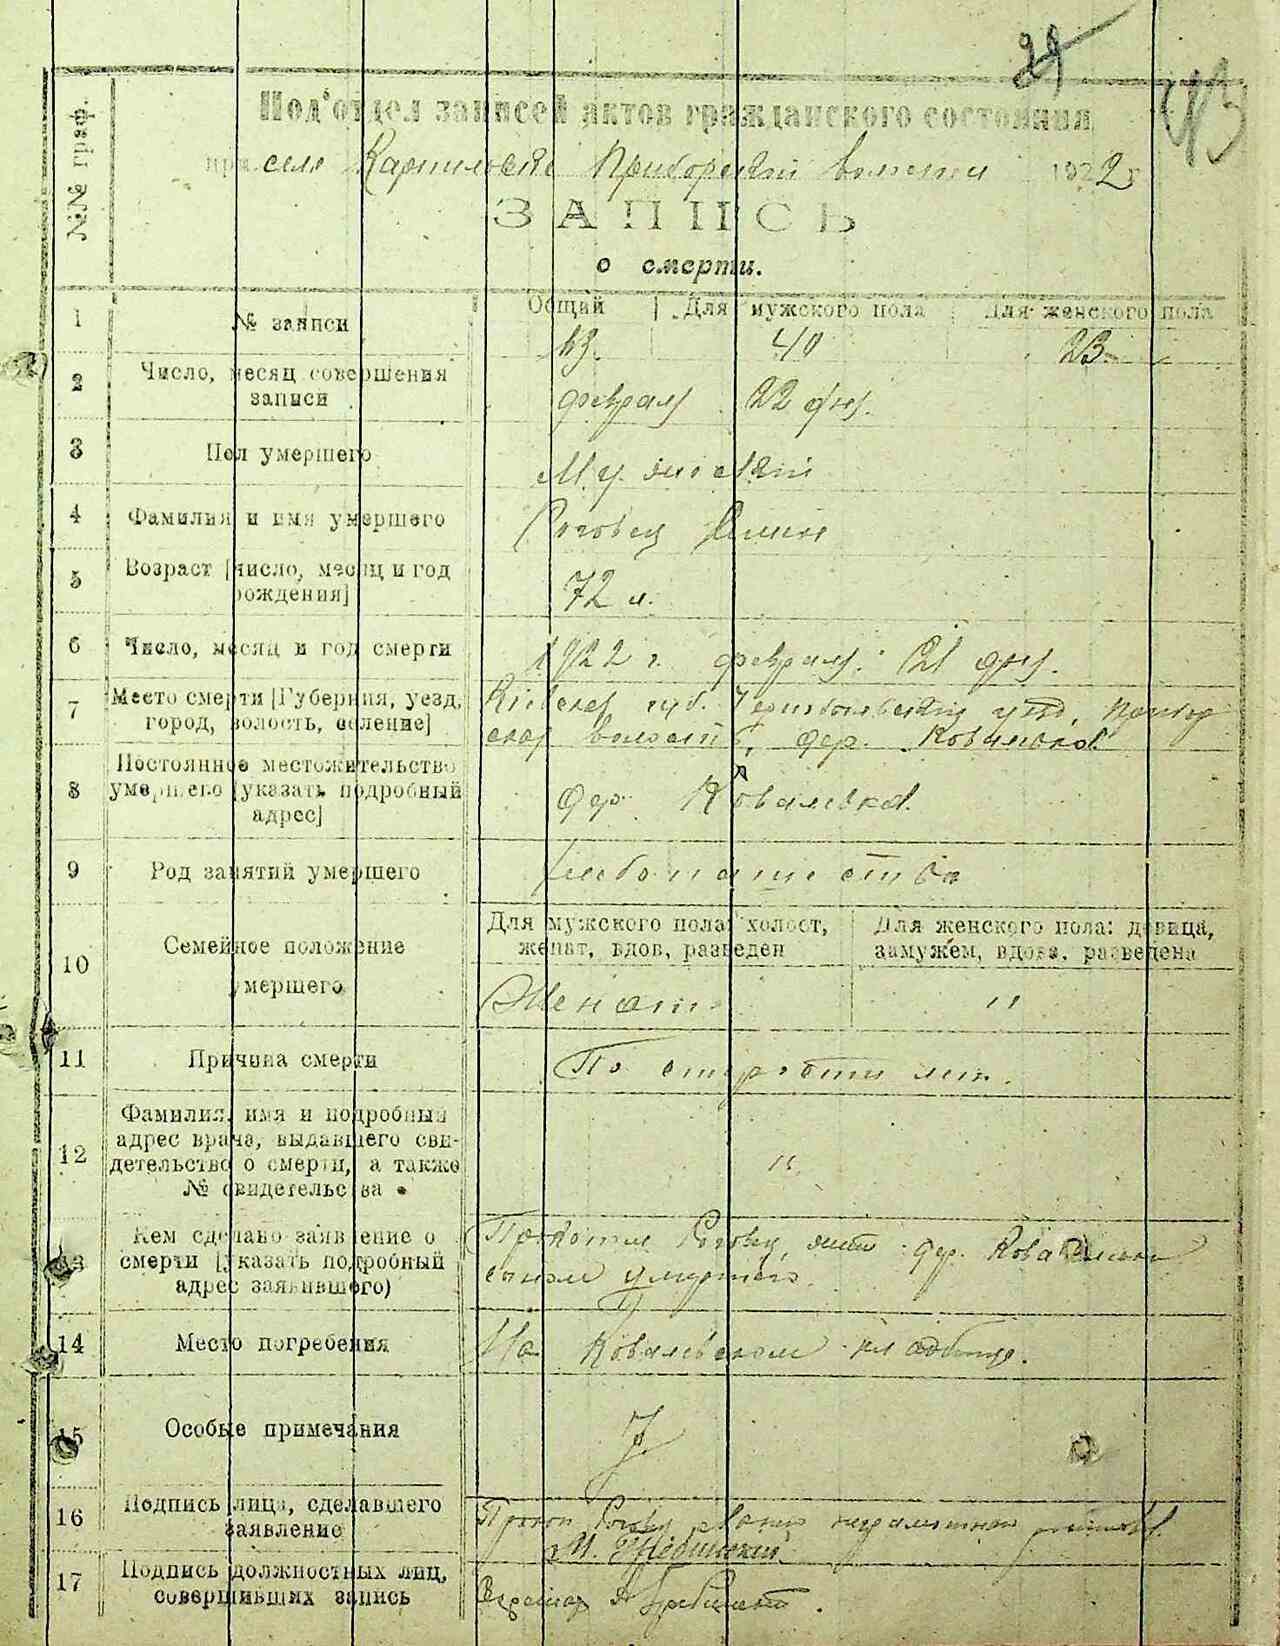 29
43
№№ граф.
Под'отдел записей актов гражданского состояния
при селе Карпиловке Приборской волости 1922 г.
ЗАПИСЬ
о смерти.
1 № записи
Общий Для мужского пола Для женского пола
63. 40 23
2 Число, месяц совершения записи
февраля 22 дня.
3 Пол умершего
Мужской
4 Фамилия и имя умершего
Роговец
5 Возраст [число, месяц и год рождения]
72 л.
6 Число, месяц и год смерти
1922 г. февраля 21 дня.
7 Место смерти [Губерния, уезд, город, волость, селение]
Киевская губ. Чернобыльский уезд, Прибор
ская волость, дер. Ковалевка
8 Постоянное местожительство умершего [указать подробный адрес]
дер. Ковалевка.
9 Род занятий умершего
хлебопашество
10 Семейное положение умершего
Для мужского пола: холост, женат, вдов, разведен
Для женского пола: девица, замужем, вдова, разведена
Женат "
11 Причина смерти
По старости лет.
12 Фамилия, имя и подробный адрес врача, выдавшего свидетельство о смерти, а также № свидетельства
"
13 Кем сделано заявление о смерти [указать подробный адрес заявившего)
Роговец, жит. дер. Ковалевки
сыном умершего.
14 Место погребения
На Ковалевском кладбище.
15 Особые примечания
16 Подпись лица, сделавшего заявление
Прокоп Роговец
17 Подпись должностных лиц, совершивших запись
Секретарь